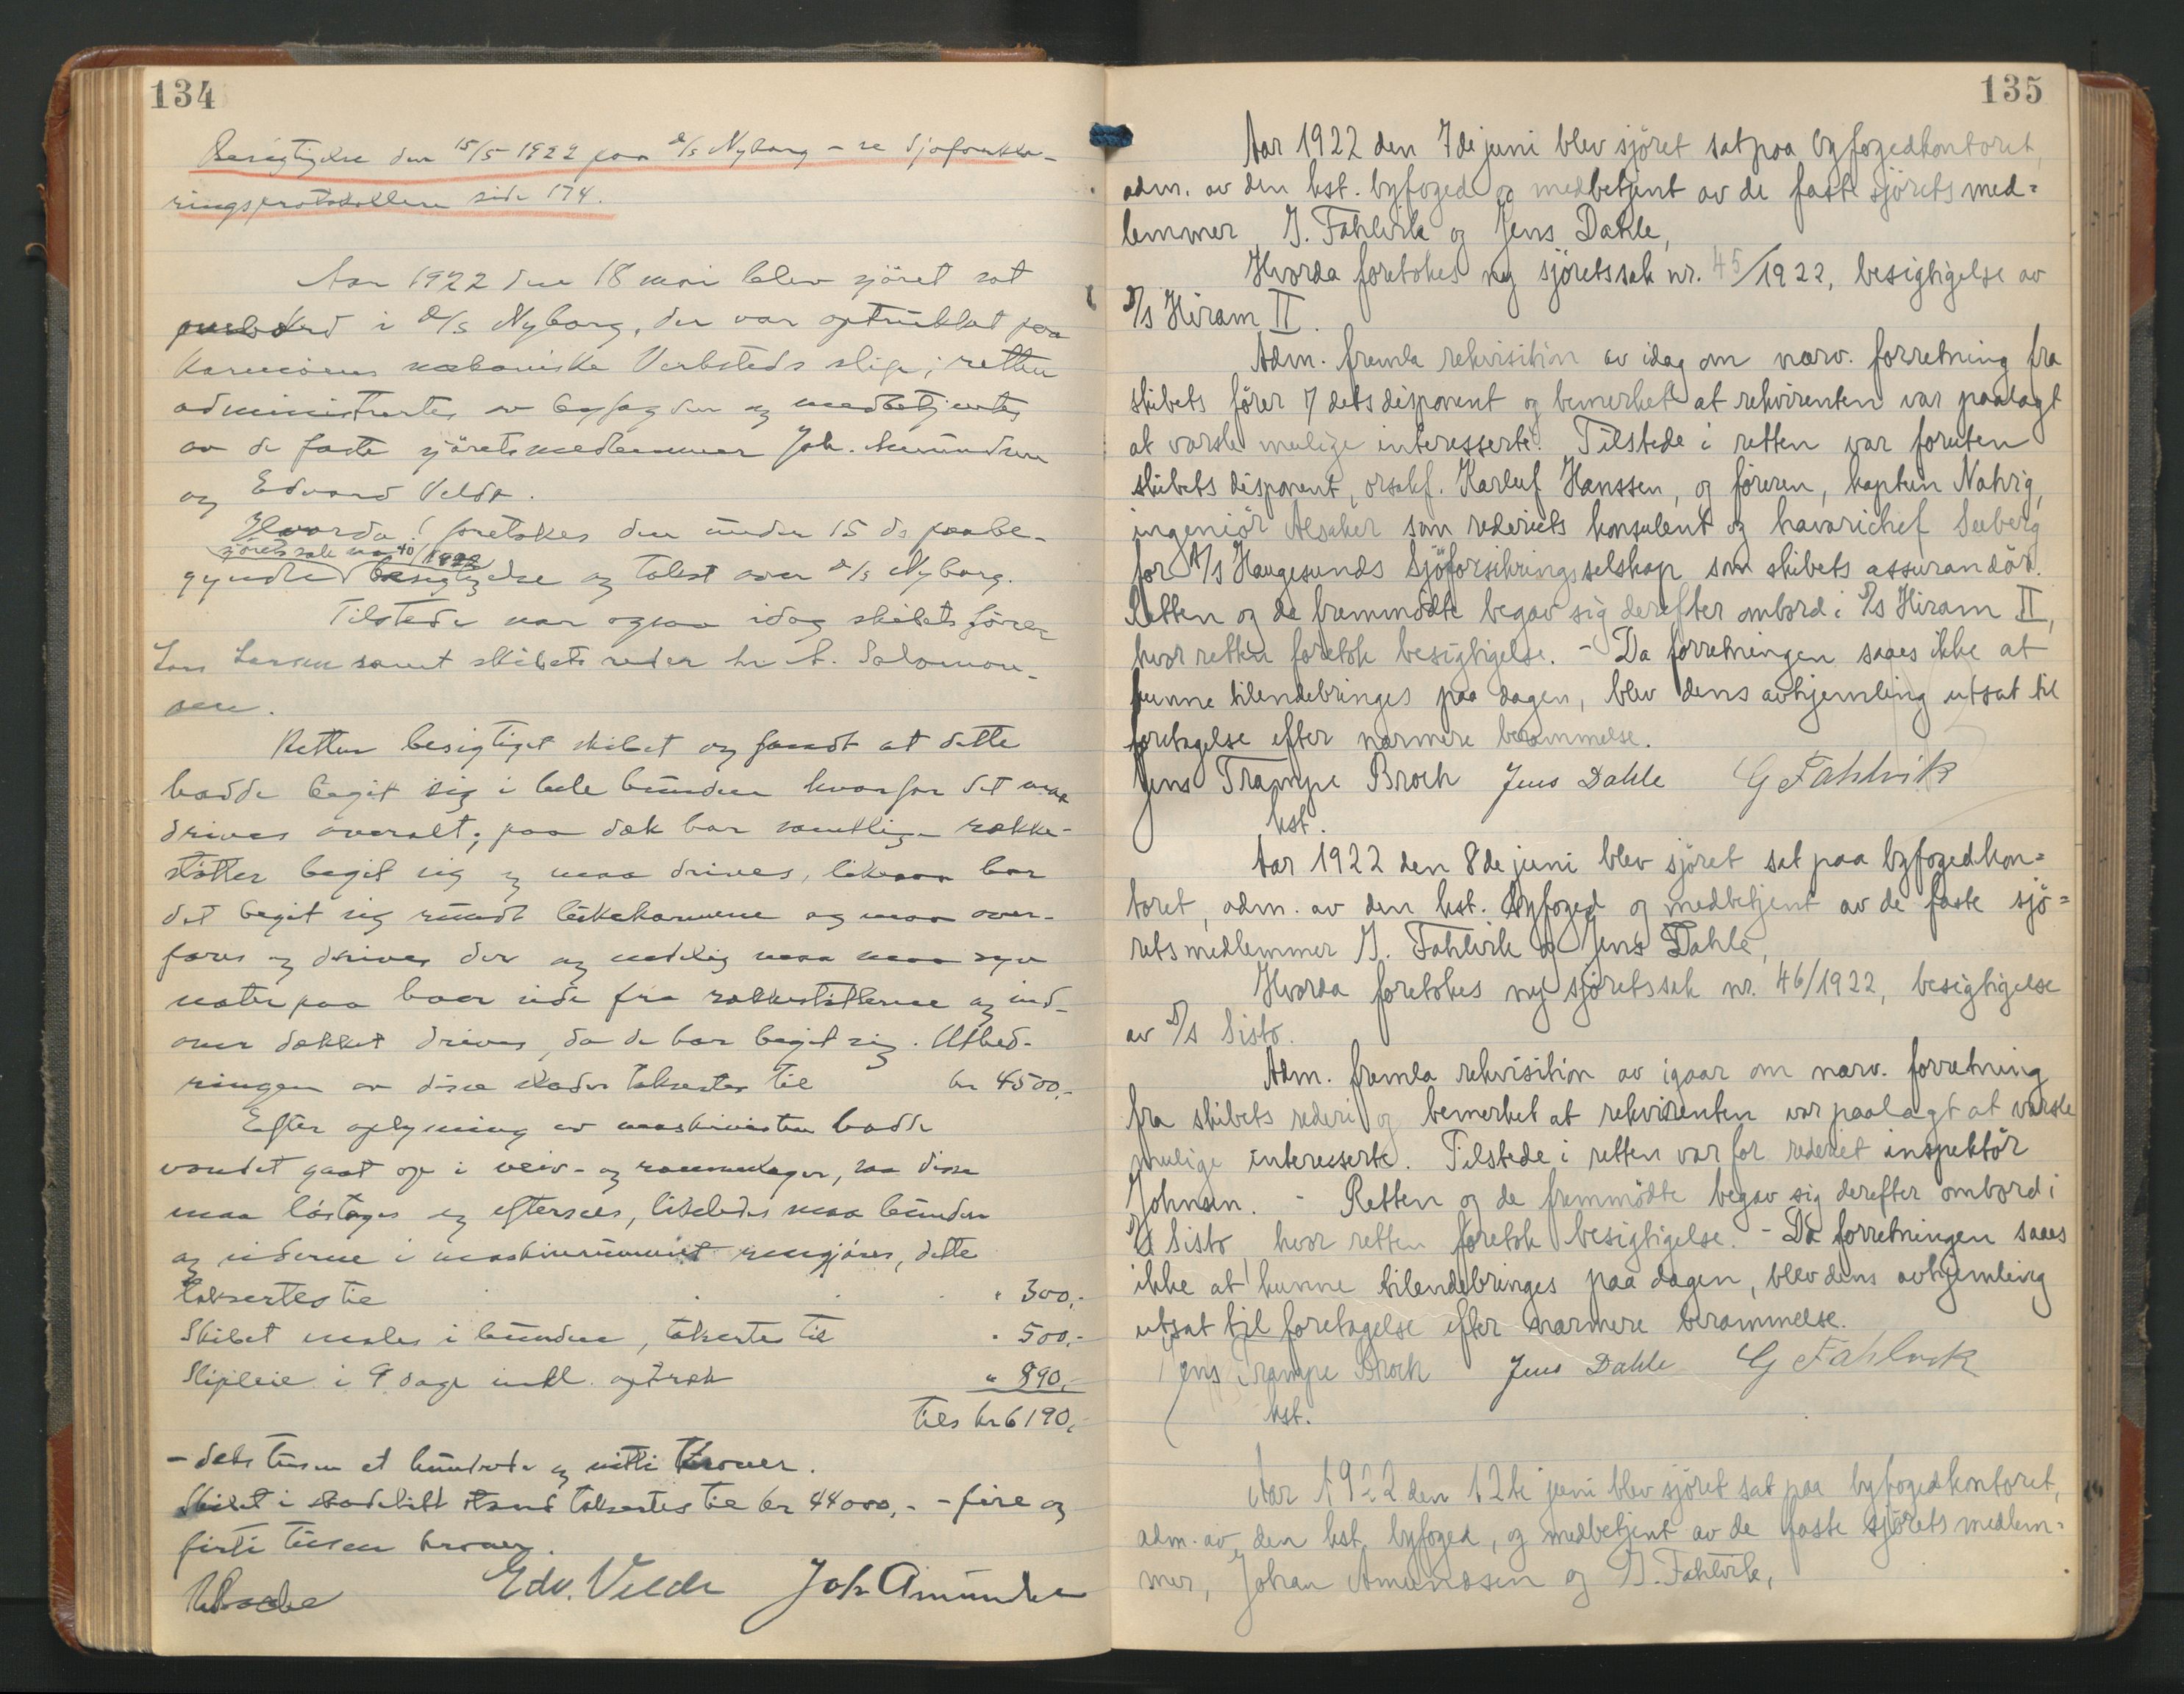 134
Besigtigelse den 15/5 1922 paa D/S Nyborg - se Sjøforkla-
ringsprotokollen side 174.
Aar 1922 den 18 mai blev sjöret sat
ombord i D/S Nyborg, der var optrukket paa
Karmöens mekaniske Verksteds slip; retten
administrertes av byfogden og medbetjentes
av de faste sjöretsmedlemmer Joh. Amundsen
og Edvard Velde.
Hvorda! foretokes den under 15 ds paabe-
sjöretssak no 40/1922
gyndte besigtigelse og takst over D/S Nyborg.
Tilstede var ogsaa idag skibets förer
Lars Larsen samt skibets reder hr A. Salomon-
sen.
Retten besigtiget skibet og fandt at dette
hadde begit sig i hele bunden hvorfor det maa
drives overalt; paa dæk har samtlige række-
stötter begit sig og maa drives, likesaa har
det begit sig rundt lukekarmene og maa over-
fares og drives der og endelig maa syv
nater paa hver side fra rækkestötterne og ind-
over dækket drives, da de har begit sig. Utbed-
ringen av disse skader taksertes til kr 4500,-
Efter oplysning av maskinisten hadde
vandet gaat op i veiv- og rammelager, saa disse
maa löstages og eftersees, likeledes maa bunden
og siderne i maskinrummet rengjöres, dette
taksertes til " 300,-
Skibet males i bunden, takseres til " 500,-
Slipleie i 9 dage inkl. optræk " 890,-
Tils kr 6190,-
- seks tusen et hundrede og nitti kroner.
Skibet i skadelidt stand taksertes til kr 44000,- - fire og
firti tusen kroner.
Edv. Velde Joh Amundsen
135
Aar 1922 den 7de juni blev sjöret sat paa byfogedkontoret,
adm. av den kst. byfoged og medbetjent av de faste sjöretsmed=
lemmer G. Fahlvik og Jens Dahle,
Hvorda foretokes ny sjöretssak nr. 45/1922, besigtigelse av
D/S Hiram II.
Adm. fremla rekvisition av idag om nærv. forretning fra
skibets förer / dets disponent og bemerket at rekvirenten var paalagt
at varsle mulige interesserte. Tilstede i retten var foruten
skibets disponent, orsakf. Karluf Hanssen, og föreren, kaptein Nahrig,
ingeniör Alsaker som rederiets konsulent og havarichef Seeberg
for A/S Haugesunds Sjöforsikringsselskap som skibets assurandör.
Retten og de fremmödte begav sig derefter ombord i D/S Hiram II,
hvor retten foretok besigtigelse. - Da forretningen saaes ikke at
kunne tilendebringes paa dagen, blev dens avhjemling utsat til
foretagelse efter nærmere berammelse.
Jens Trampe Broch Jens Dahle G Fahlvik
kst.
Aar 1922 den 8de juni blev sjöret sat paa byfogedkon=
toret, adm. av den kst. byfoged og medbetjent av de faste sjö=
retsmedlemmer G. Fahlvik og Jens Dahle,
Hvorda foretokes ny sjöretssak nr. 46/1922, besigtigelse
av D/S Sisto.
Adm. fremla rekvisition av igaar om nærv. forretning
fra skibets rederi og bemerket at rekvirenten var paalagt at varsle
mulige interesserte. Tilstede i retten var for rederiet inspektör
Johnsen. - Retten og de fremmödte begav sig derefter ombord i
D/S Sisto hvor retten foretok besigtigelse. - Da forretningen saaes
ikke at kunne tilendebringes paa dagen, blev dens avhjemling
utsat til foretagelse efter nærmere berammelse.
Jens Trampe Broch Jens Dahle G Fahlvik
kst.
Aar 1922 den 12te juni blev sjöret sat paa byfogedkontoret,
adm. av den kst. byfoged, og medbetjent av de faste sjöretsmedlem=
mer, Johan Amundsen og G. Fahlvik,